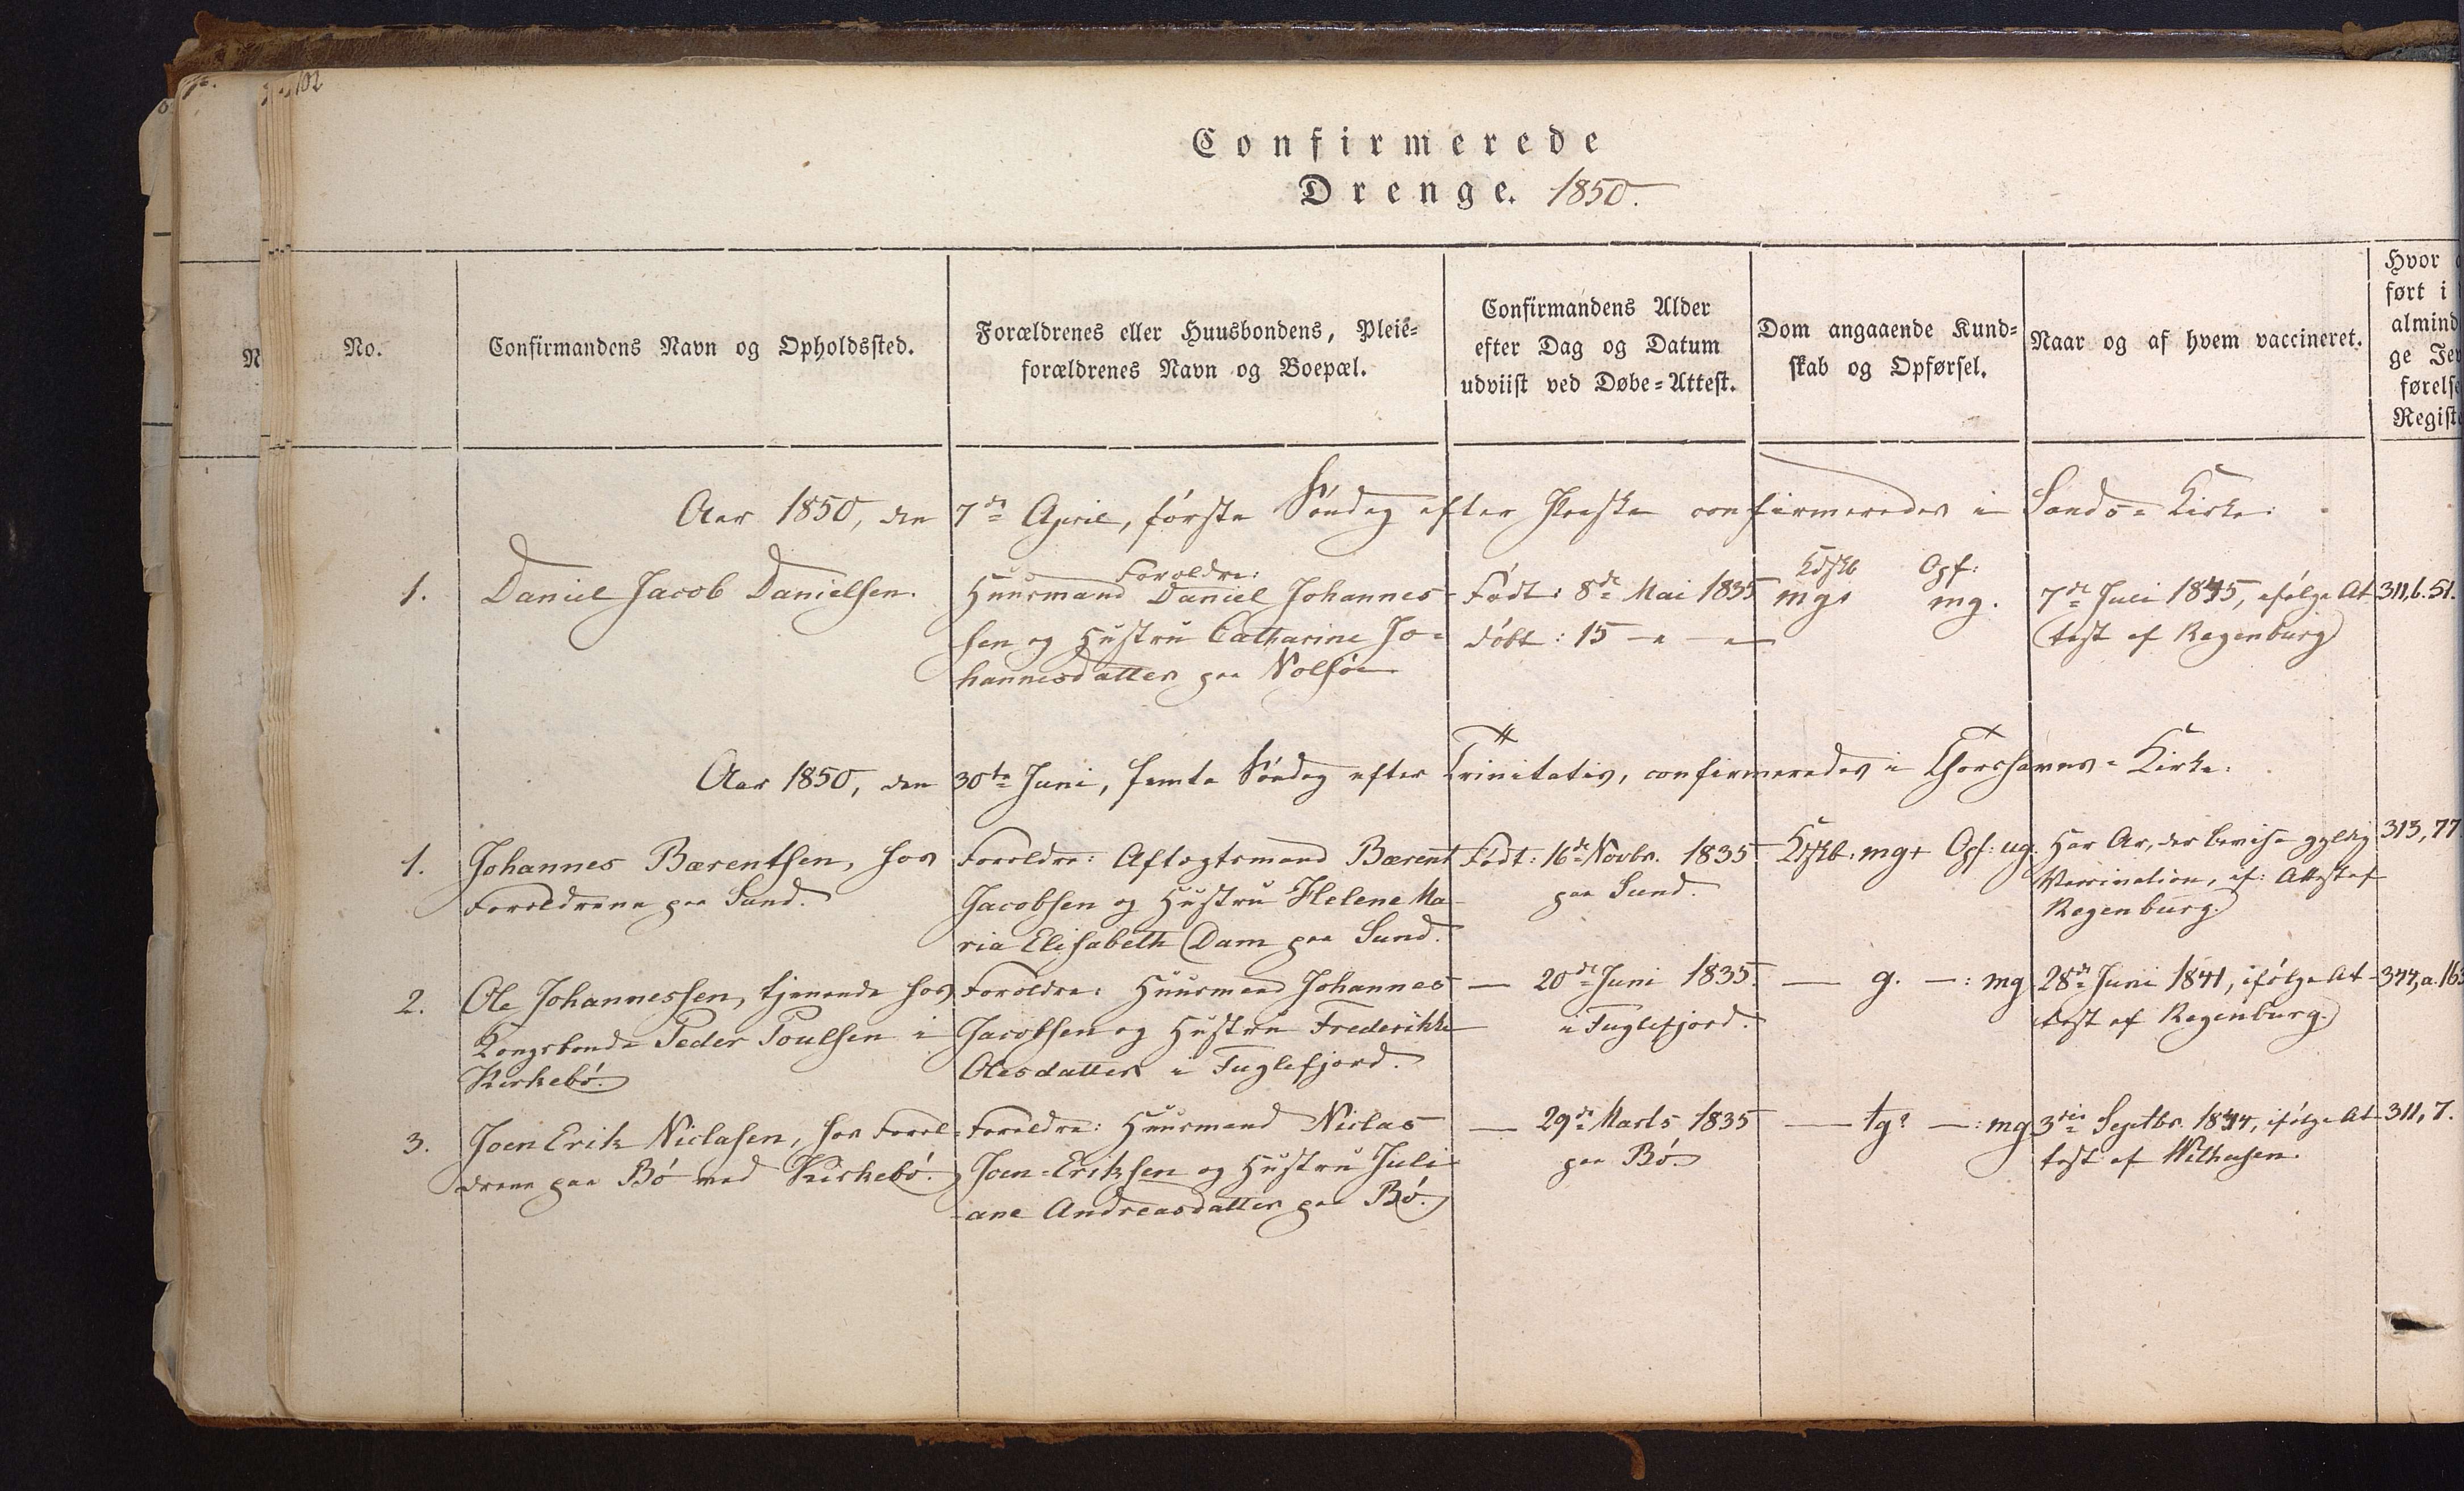 102
Confirmerede
Drenge. 1850.
No.
Confirmandens Navn og Opholdssted.
Forældrenes eller Huusbondens, Pleie-
forældrenes Navn og Boepæl.
Confirmandens Alder
efter Dag og Datum
udviist ved Døbe-Attest.
Dom angaaende Kund-
skab og Opførsel.
Naar og af hvem vaccineret.
Hvor
ført i
almind
ge
førelse
Regist
Aar 1850, den 7de April, første Søndag efter Paaske confirmeredes i Sands-Kirke.
1.
Daniel Jacob Danielsen.
Forældre:
Huusmand Daniel Johannes-
sen og Hustru Catharine Jo-
hannesdatter paa Nolsøe
Født: 8de Mai 1835
døbt: 15 - -
Kdskb Opf:
mg mg.
7de Juli 1845, ifølge At-
test af Regenburg
311,6.51.
Aar 1850, den 30te Juni, femte Søndag efter Trinitatis, confirmeredes i Thorshavns-Kirke.
1.
Johannes Bærentsen, hos
Forældrene paa Sund.
Forældre: Aftægtsmand Bærent
Jacobsen og Hustru Helene Ma-
ria Elisabeth Dam paa Sund.
Født: 16de Novbr. 1835
paa Sund.
Kdskb: mg+ Opf: ug.
Har Ar, der bevise gyldig
Vaccination, if: Attest af
Regenburg.
313, 77
2.
Ole Johannessen, tjenende hos
Kongsbonde Peder Poulsen i
Kirkebø.
Forældre: Huusmand Johannes
Jacobsen og Hustru Frederikke
Olesdatter i Fuglefjord.
— 20de Juni 1835.
i Fuglefjord.
— g. —: mg
28de Juni 1841, ifølge At-
test af Regenburg.
344, a.16
3.
Joen Erik Niclasen, hos Foræl-
drene paa Bø ved Kirkebø.
Forældre: Huusmand Niclas
Joen-Eriksen og Hustru Juli-
ane Andreasdatter paa Bø.
— 29de Marts 1835
paa Bø.
— tg? —: mg
3die Septbr. 1844, ifølge At-
test af
311, 7.